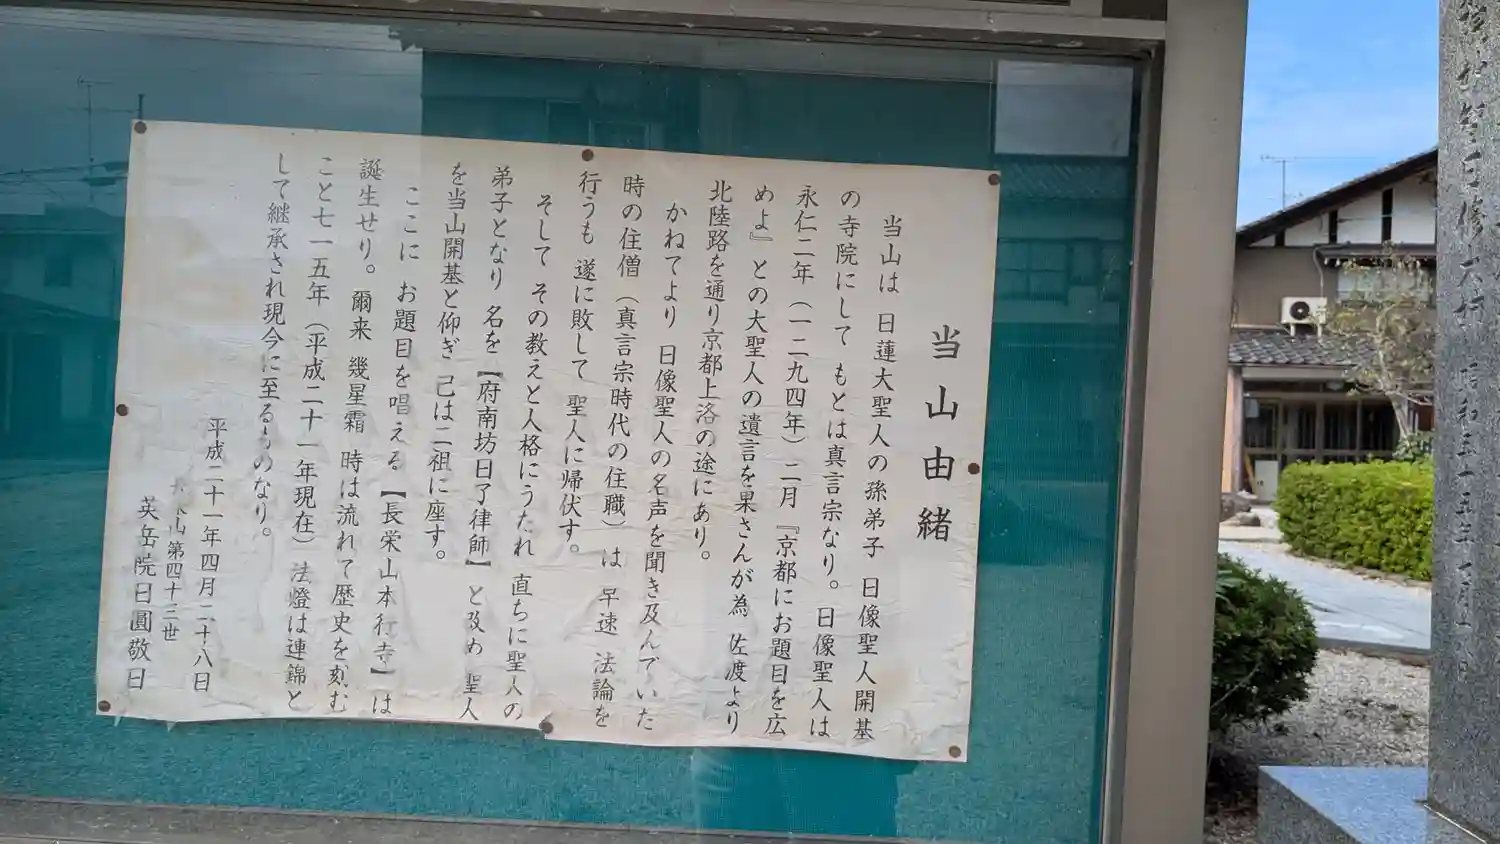 当山由緒
当山は 日蓮大聖人の孫弟子 日像聖人開基
の寺院にして もとは真言宗なり。日像聖人は
永仁二年（一二九四年）二月『京都にお題目を広
めよ』との大聖人の遺言を果さんが為 佐渡より
北陸路を通り京都上洛の途にあり。
かねてより 日像聖人の名声を聞き及んでいた
時の住僧（真言宗時代の住職）は 早速 法論を
行うも 遂に敗して 聖人に帰伏す。
そして その教えと人格にうたれ 直ちに聖人の
弟子となり 名を【府南坊日了律師】と改め 聖人
を当山開基と仰ぎ 己は二祖に座す。
ここに お題目を唱える【長栄山本行寺】は
誕生せり。爾来 幾星霜 時は流れて歴史を刻む
こと七一五年（平成二十一年現在）法燈は連錦と
して継承され現今に至るものなり。
平成二十一年四月二十八日
山第四十三世
英岳院日圓敬白
昭和五十五年